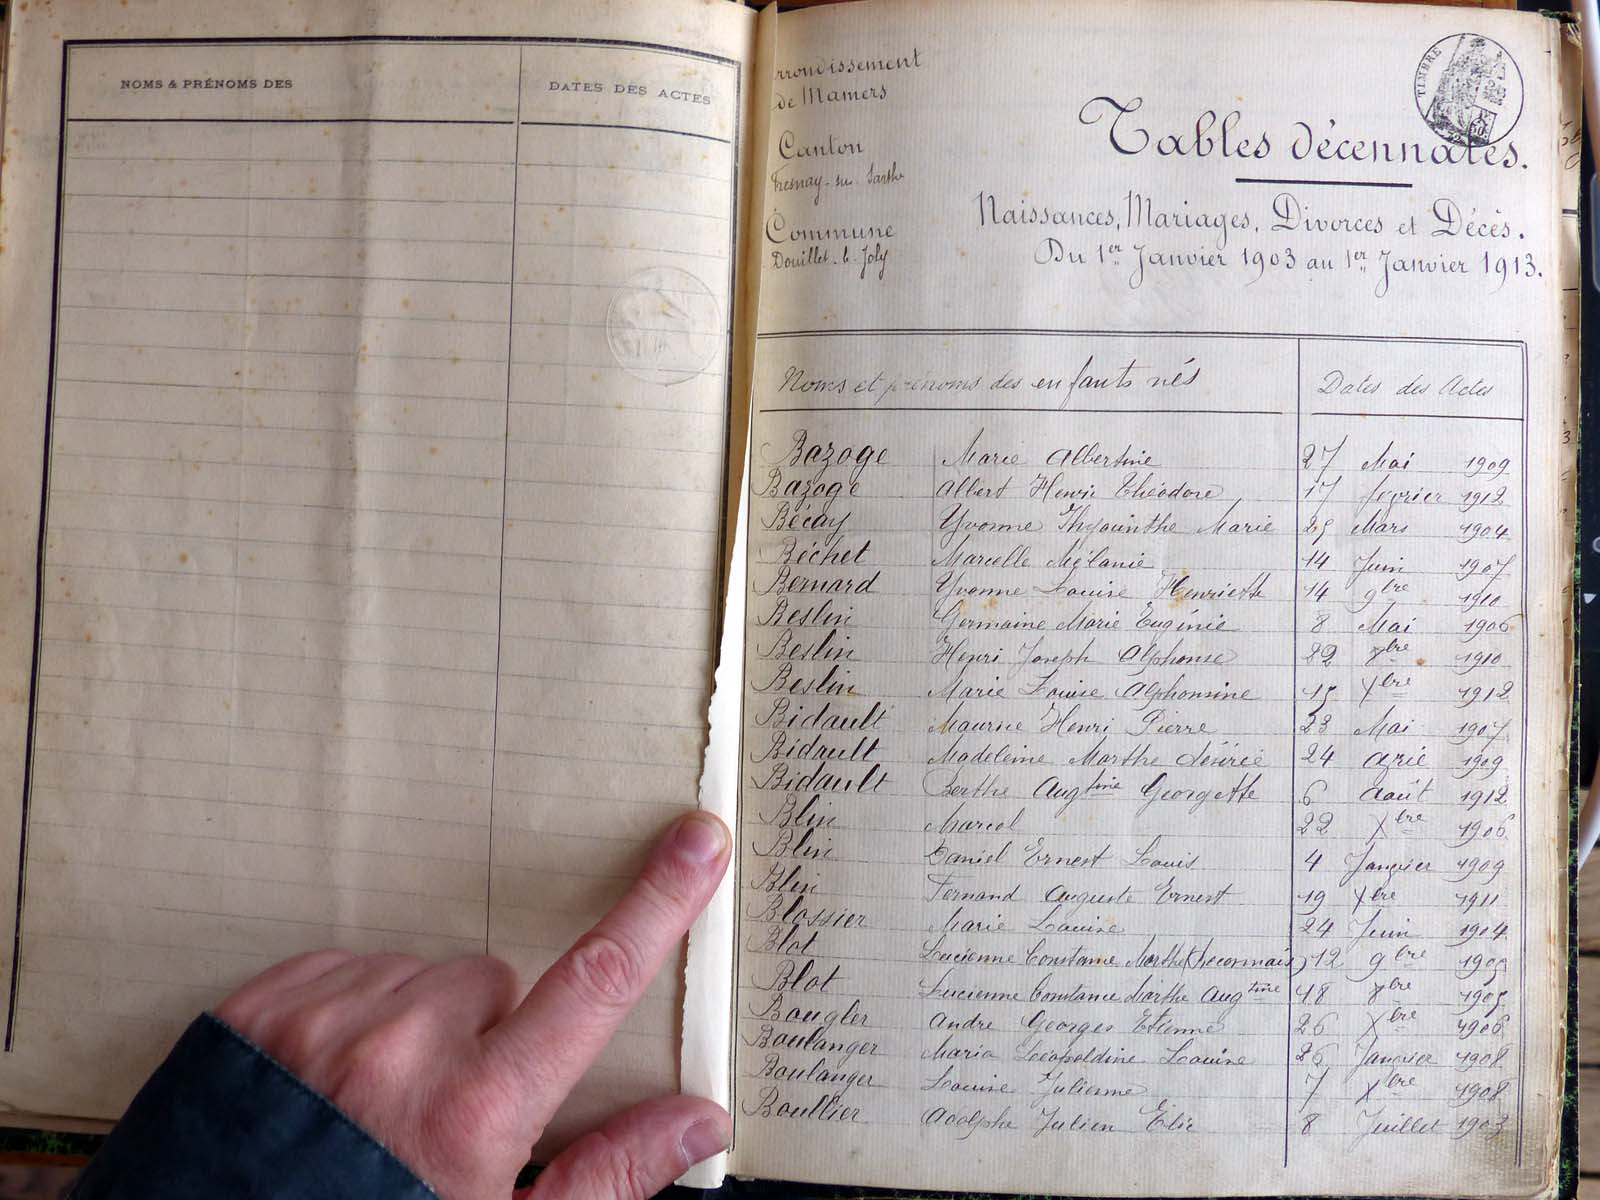 NOMS & PRÉNOMS DES
DATES DES ACTES
rrondissement
de Mamers
Canton
Fresnay-sur-Sarthe
Commune
Douillet-le-Joly
TIMBRE
Tables décennales.
Naissances, Mariages, Divorces et Décès.
Du 1er Janvier 1903 au 1er Janvier 1913.
Noms et prénoms des enfants nés Dates des Actes
Bazoge Marie Albertine 27 Mai 1909
Bazoge Albert Henri Théodore 17 février 1912
Bécay Yvonne Thyacinthe Marie 25 Mars 1904
Béchet Marcelle Mélanie 14 Juin 1907
Bernard Yvonne Louise Henriette 14 9bre 1910
Beslin Germaine Marie Eugénie 8 Mai 1906
Beslin Henri Joseph Alphonse 22 8bre 1910
Beslin Marie Louise Alphonsine 15 Xbre 1912
Bidault Maurice Henri Pierre 23 Mai 1907
Bidault Madeleine Marthe désirée 24 avril 1909
Bidault Berthe Augtine Georgette 6 août 1912
Blin Marcel 22 Xbre 1906
Blin Daniel Ernest Louis 4 Janvier 1909
Blin Fernand Auguste Ernest 19 Xbre 1911
Blossier Marie Louise 24 Juin 1904
Blot Lucienne Constance Marthe (reconnais) 12 9bre 1905
Blot Lucienne Constance Marthe Augtine 18 8bre 1905
Bougler André Georges Etienne 26 Xbre 1906
Boulanger Maria Léopoldine Louise 26 Janvier 1908
Boulanger Louise Julienne 7 Xbre 1908
Boullier Adolphe Julien Élie 8 Juillet 1903